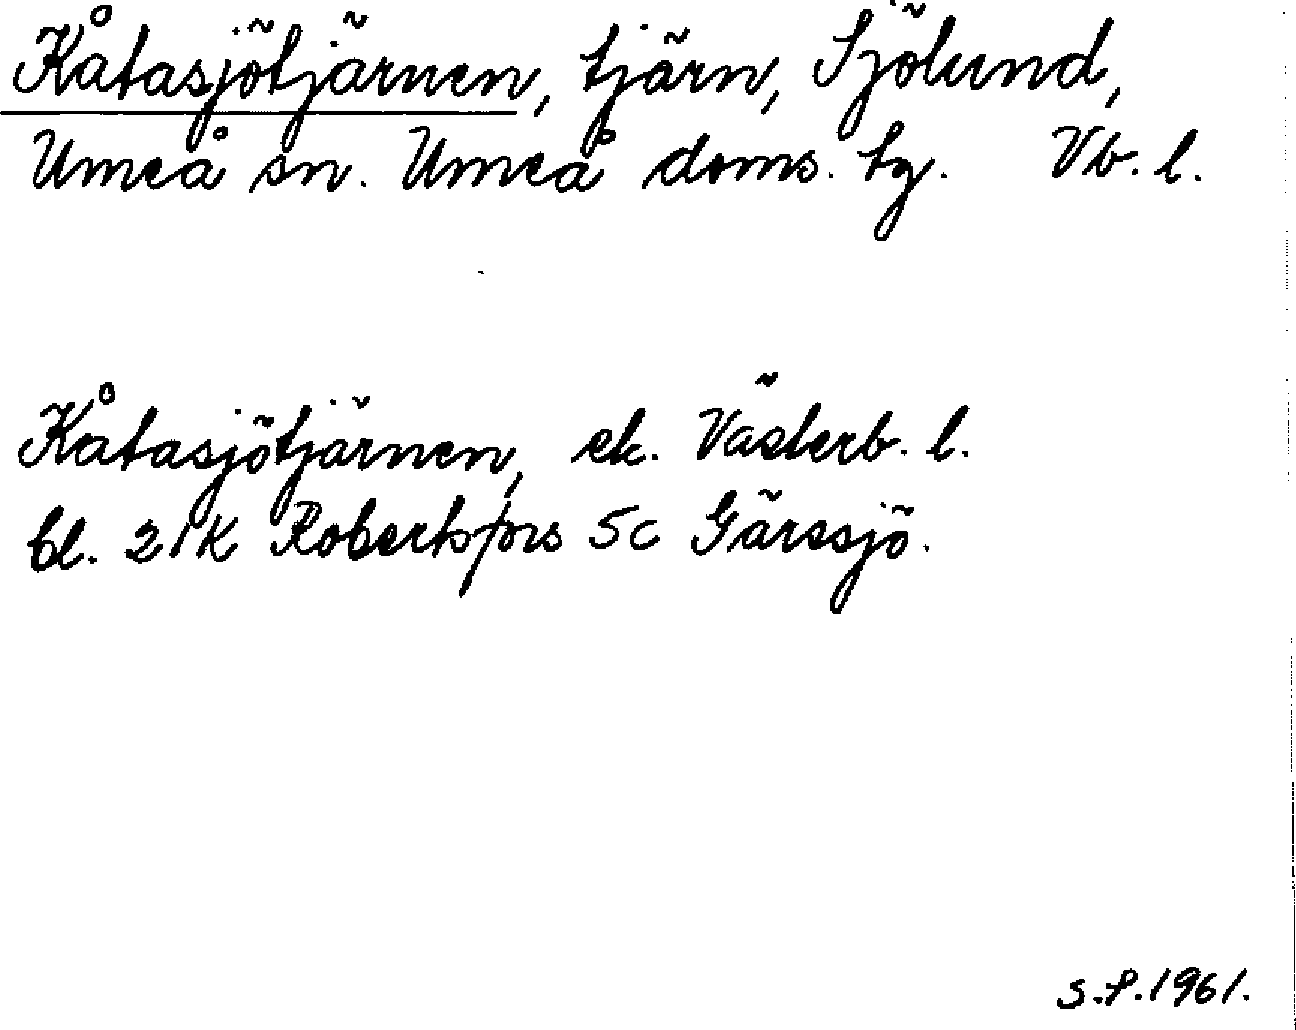 Kåtasjötjärnen, tjärn, Sjölund,
Umeå sn. Umeå doms. tg. Vb. l.
Kåtasjötjärnen, ek. Västerb. l.
bl. 21K Robertsfors 5c Gärssjö.
S.P.1961.